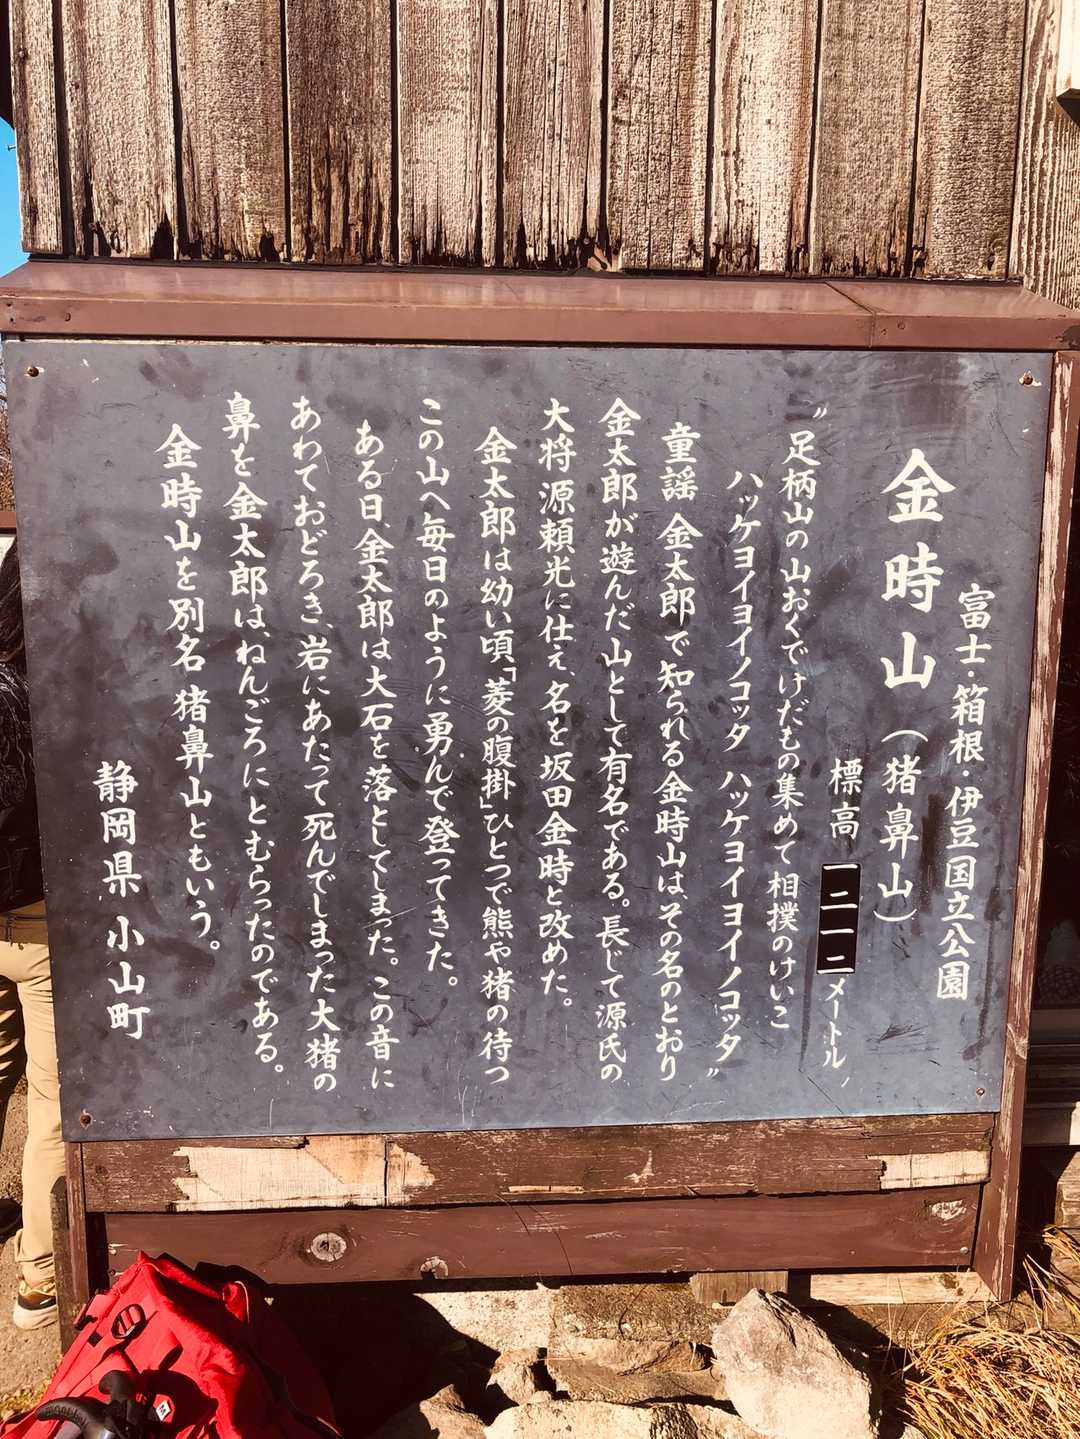 富士・箱根・伊豆国立公園
金時山（猪鼻山）
標高一二一二メートル
〝足柄山の山おくでけだもの集めて相撲のけいこ
ハッケヨイヨイノコッタ ハッケヨイヨイノコッタ〟
童謡 金太郎で知られる金時山は、その名のとおり
金太郎が遊んだ山として有名である。長じて源氏の
大将源頼光に仕え、名を坂田金時と改めた。
金太郎は幼い頃、「菱の腹掛」ひとつで熊や猪の待つ
この山へ毎日のように勇んで登ってきた。
ある日、金太郎は大石を落としてしまった。この音に
あわておどろき、岩にあたって死んでしまった大猪の
鼻を金太郎は、ねんごろにとむらったのである。
金時山を別名 猪鼻山ともいう。
静岡県 小山町